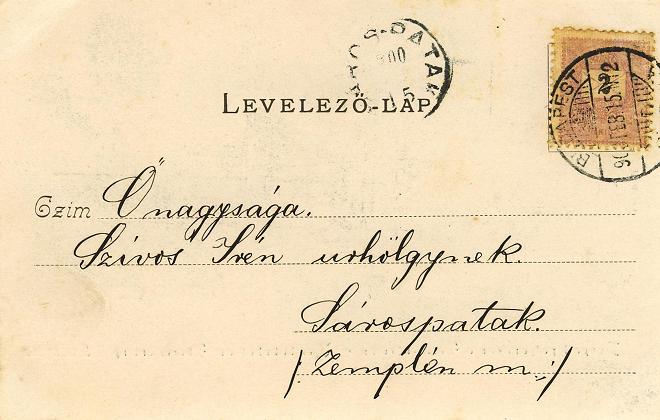 LEVELEZŐ-LAP
Czim Őnagysága.
Szívos Irén urhölgynek.
Sárospatak.
/Zemplén m:/
ROS-PATAK
900
5
BUDAPEST
900 FEB 15